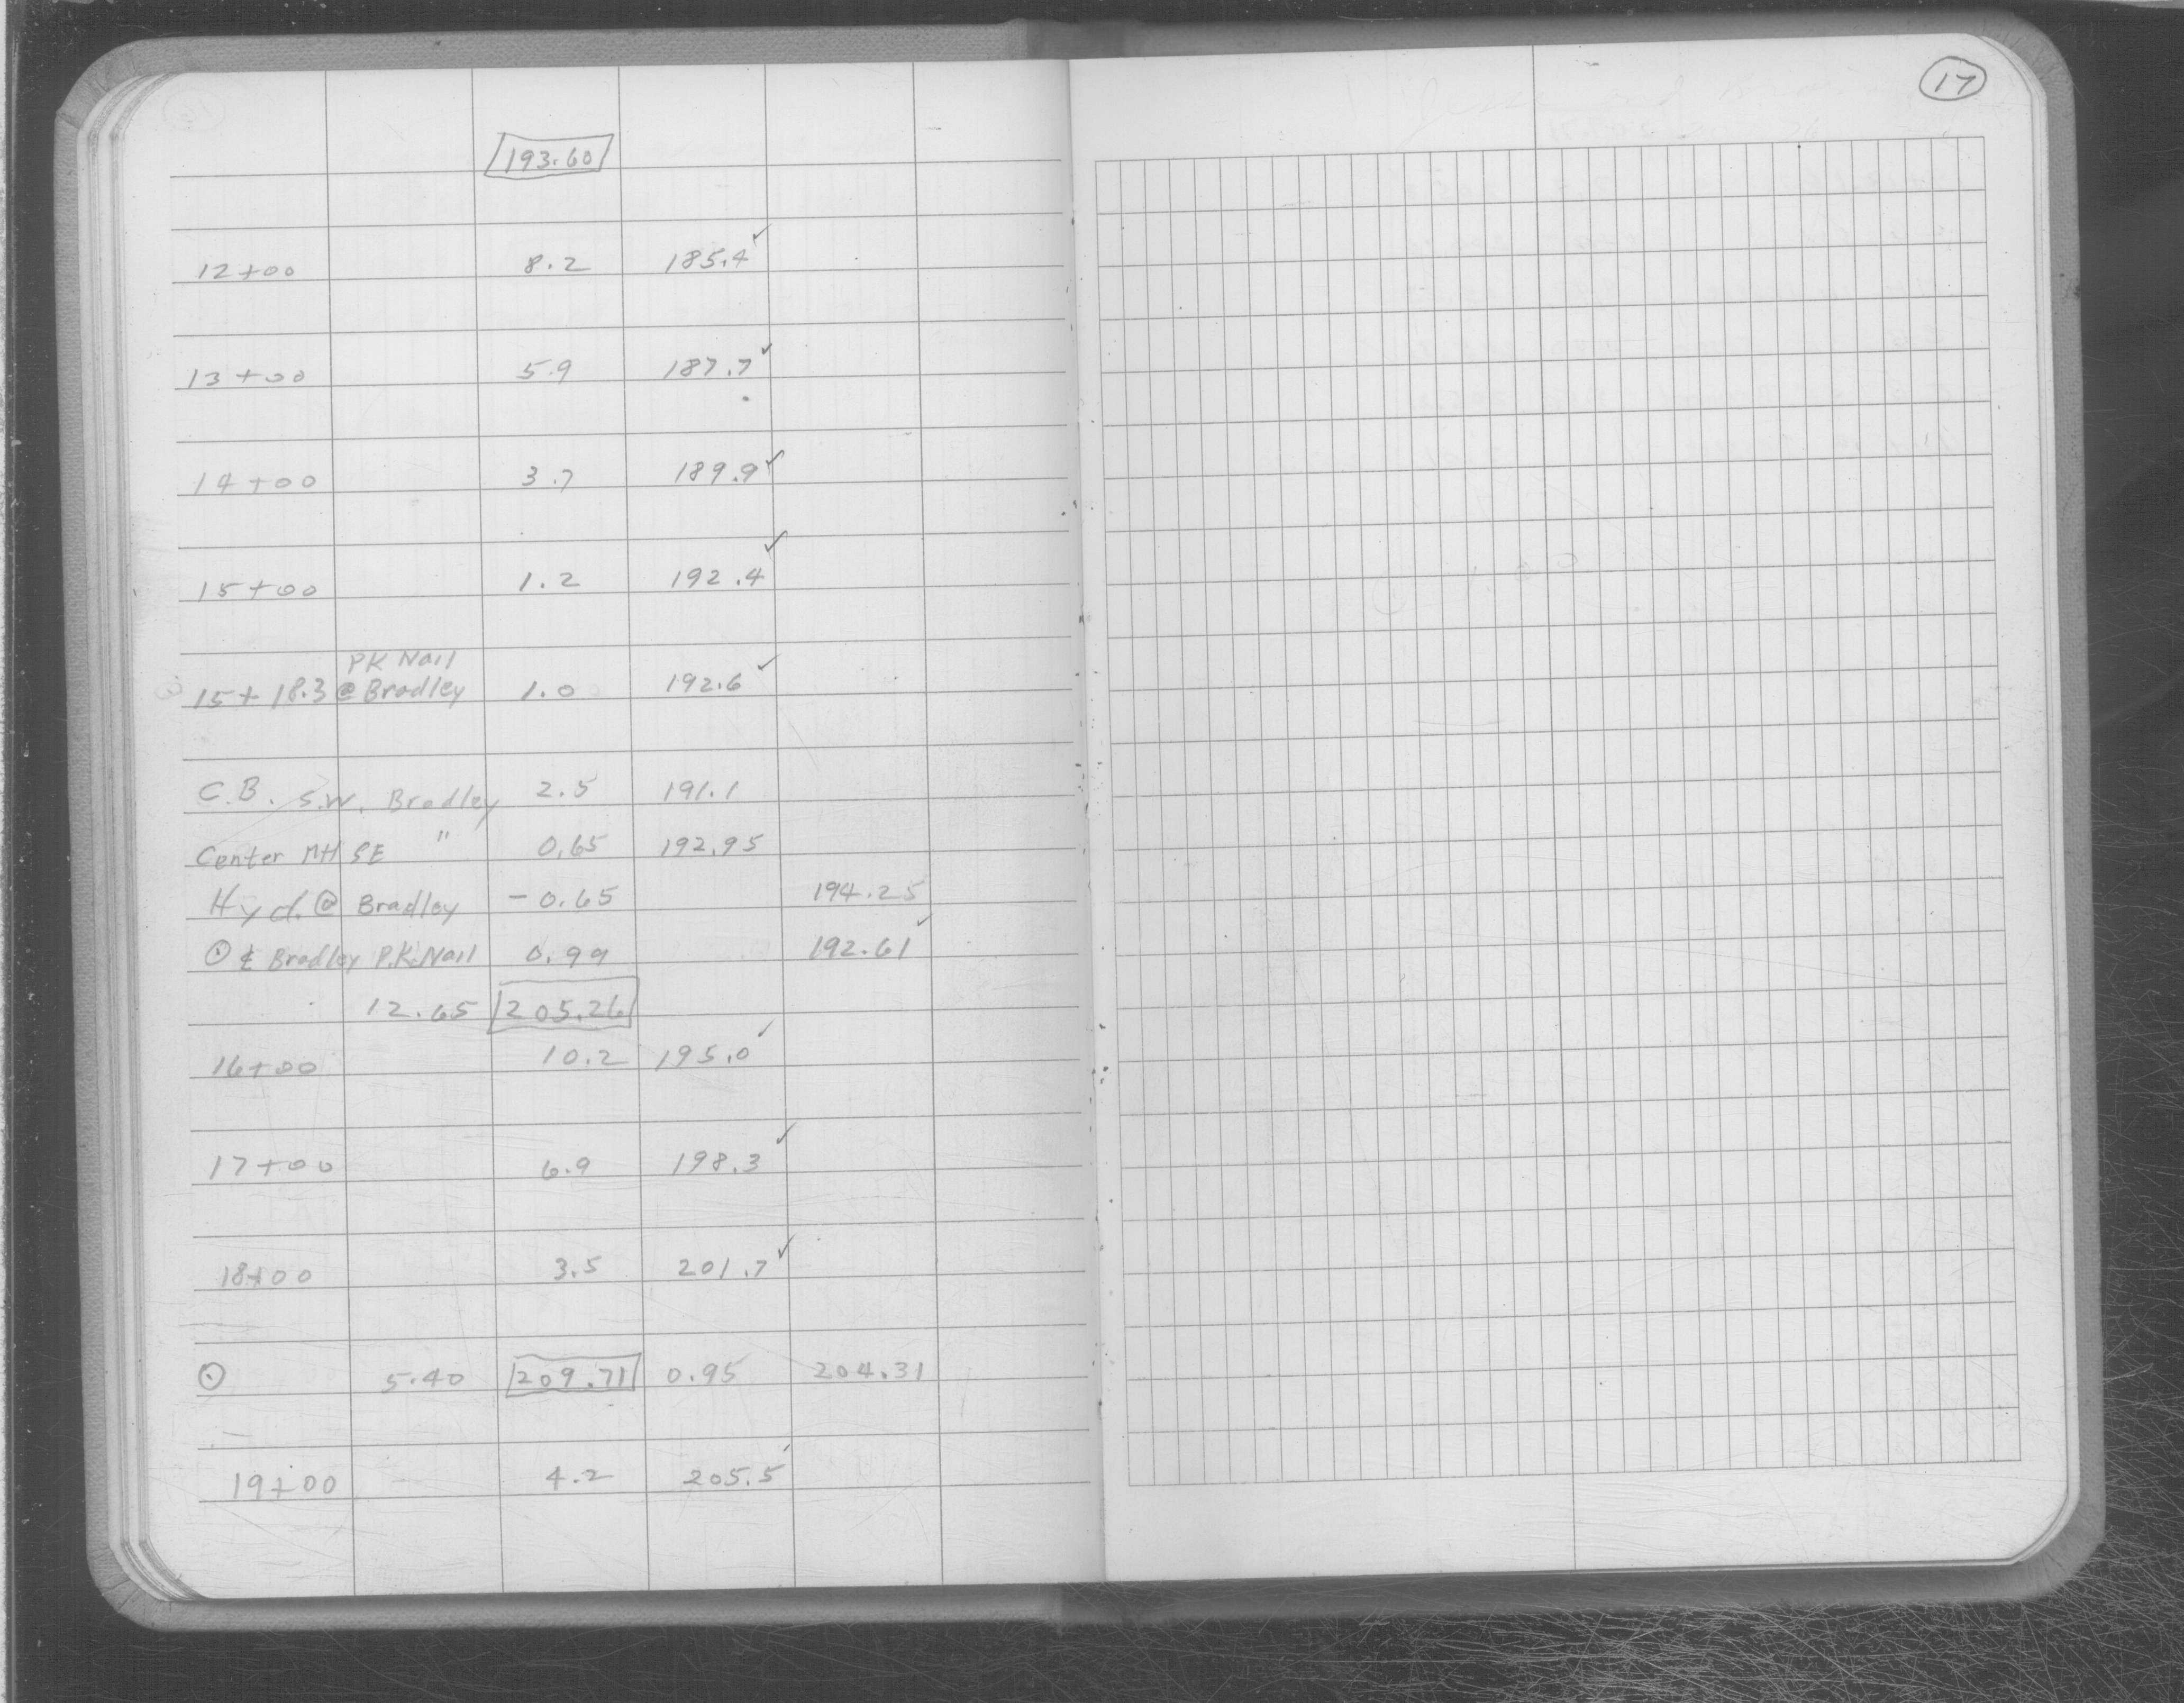 17
193.60
12+00 8.2 185.4 ✓
13+00 5.9 187.7 ✓
14+00 3.7 189.9 ✓
15+00 1.2 192.4 ✓
PK Nail
15+18.3 @ Bradley 1.0 192.6 ✓
C.B. S.W. Bradley 2.5 191.1
Center MH SE " 0.65 192.95
Hyd. @ Bradley -0.65 194.25
⊙ ¢ Bradley P.K. Nail 0.99 192.61 ✓
12.65 205.26
16+00 10.2 195.0 ✓
17+00 6.9 198.3 ✓
18+00 3.5 201.7 ✓
⊙ 5.40 209.71 0.95 204.31
19+00 4.2 205.5 ✓